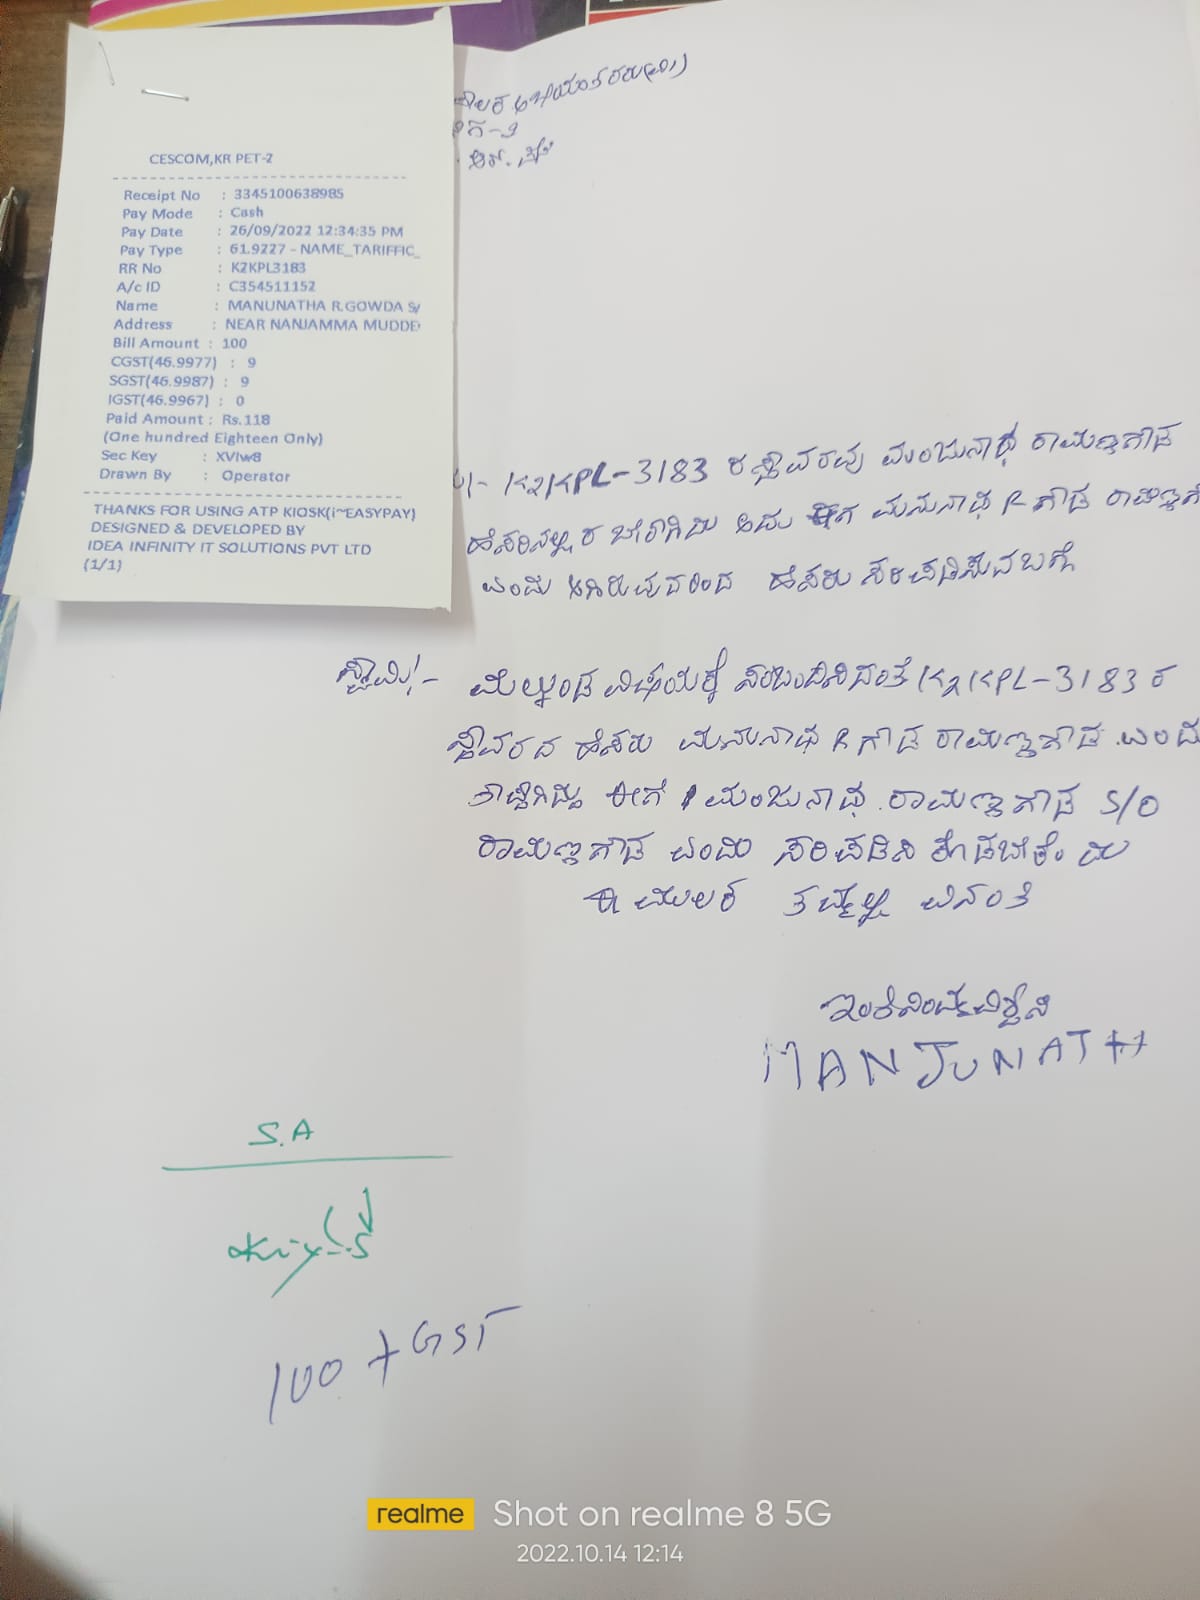 CESCOM,KR PET-2
Receipt No : 3345100638985
Pay Mode : Cash
Pay Date : 26/09/2022 12:34:35 PM
Pay Type : 61.9227 - NAME_TARIFFIC_
RR No : K2KPL3183
A/c ID : C354511152
Name : MANUNATHA R.GOWDA S/
Address : NEAR NANJAMMA MUDDE
Bill Amount : 100
CGST(46.9977) : 9
SGST(46.9987) : 9
IGST(46.9967) : 0
Paid Amount : Rs.118
(One hundred Eighteen Only)
Sec Key : XVIw8
Drawn By : Operator
THANKS FOR USING ATP KIOSK(i~EASYPAY)
DESIGNED & DEVELOPED BY
IDEA INFINITY IT SOLUTIONS PVT LTD
(1/1)
K2KPL-3183 ರ ಸ್ಥಾವರವು ಮಂಜುನಾಥ ರಾಮಣ್ಣಗೌಡ
ಮನುನಾಥ R ಗೌಡ
ಎಂದು ಆಗಿರುವುದರಿಂದ ಹೆಸರು ಸರಿಪಡಿಸುವ ಬಗ್ಗೆ
ಸ್ವಾಮಿ/- ಮೇಲ್ಕಂಡ ವಿಷಯಕ್ಕೆ ಸಂಬಂದಿಸಿದಂತೆ K2KPL-3183 ರ
ಸ್ಥಾವರದ ಹೆಸರು ಮನುನಾಥ R ಗೌಡ ರಾಮಣ್ಣಗೌಡ ಎಂದು
ಈಗ ಮಂಜುನಾಥ. ರಾಮಣ್ಣಗೌಡ S/O
ರಾಮಣ್ಣಗೌಡ ಎಂದು ಸರಿಪಡಿಸಿ ಕೊಡಬೇಕೆಂದು
ಈ ಮುಲಕ ವಿನಂತಿ
ಇಂತಿ ನಿಂಮ್ಮ ವಿಶ್ವಾಸಿ
MANJUNATH
S.A
100 + GST
realme Shot on realme 8 5G
2022.10.14 12:14